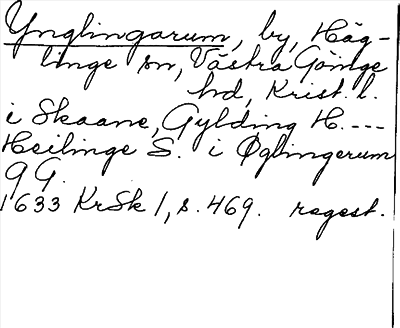 Ynglingarum, by, Häg-
linge sn, Västra Göinge
hd, Krist. l.
i Skaane, Gylding H. ---
Heilinge S. i Øglingerum
9 G.
1633 KrSk 1, s. 469. regest.